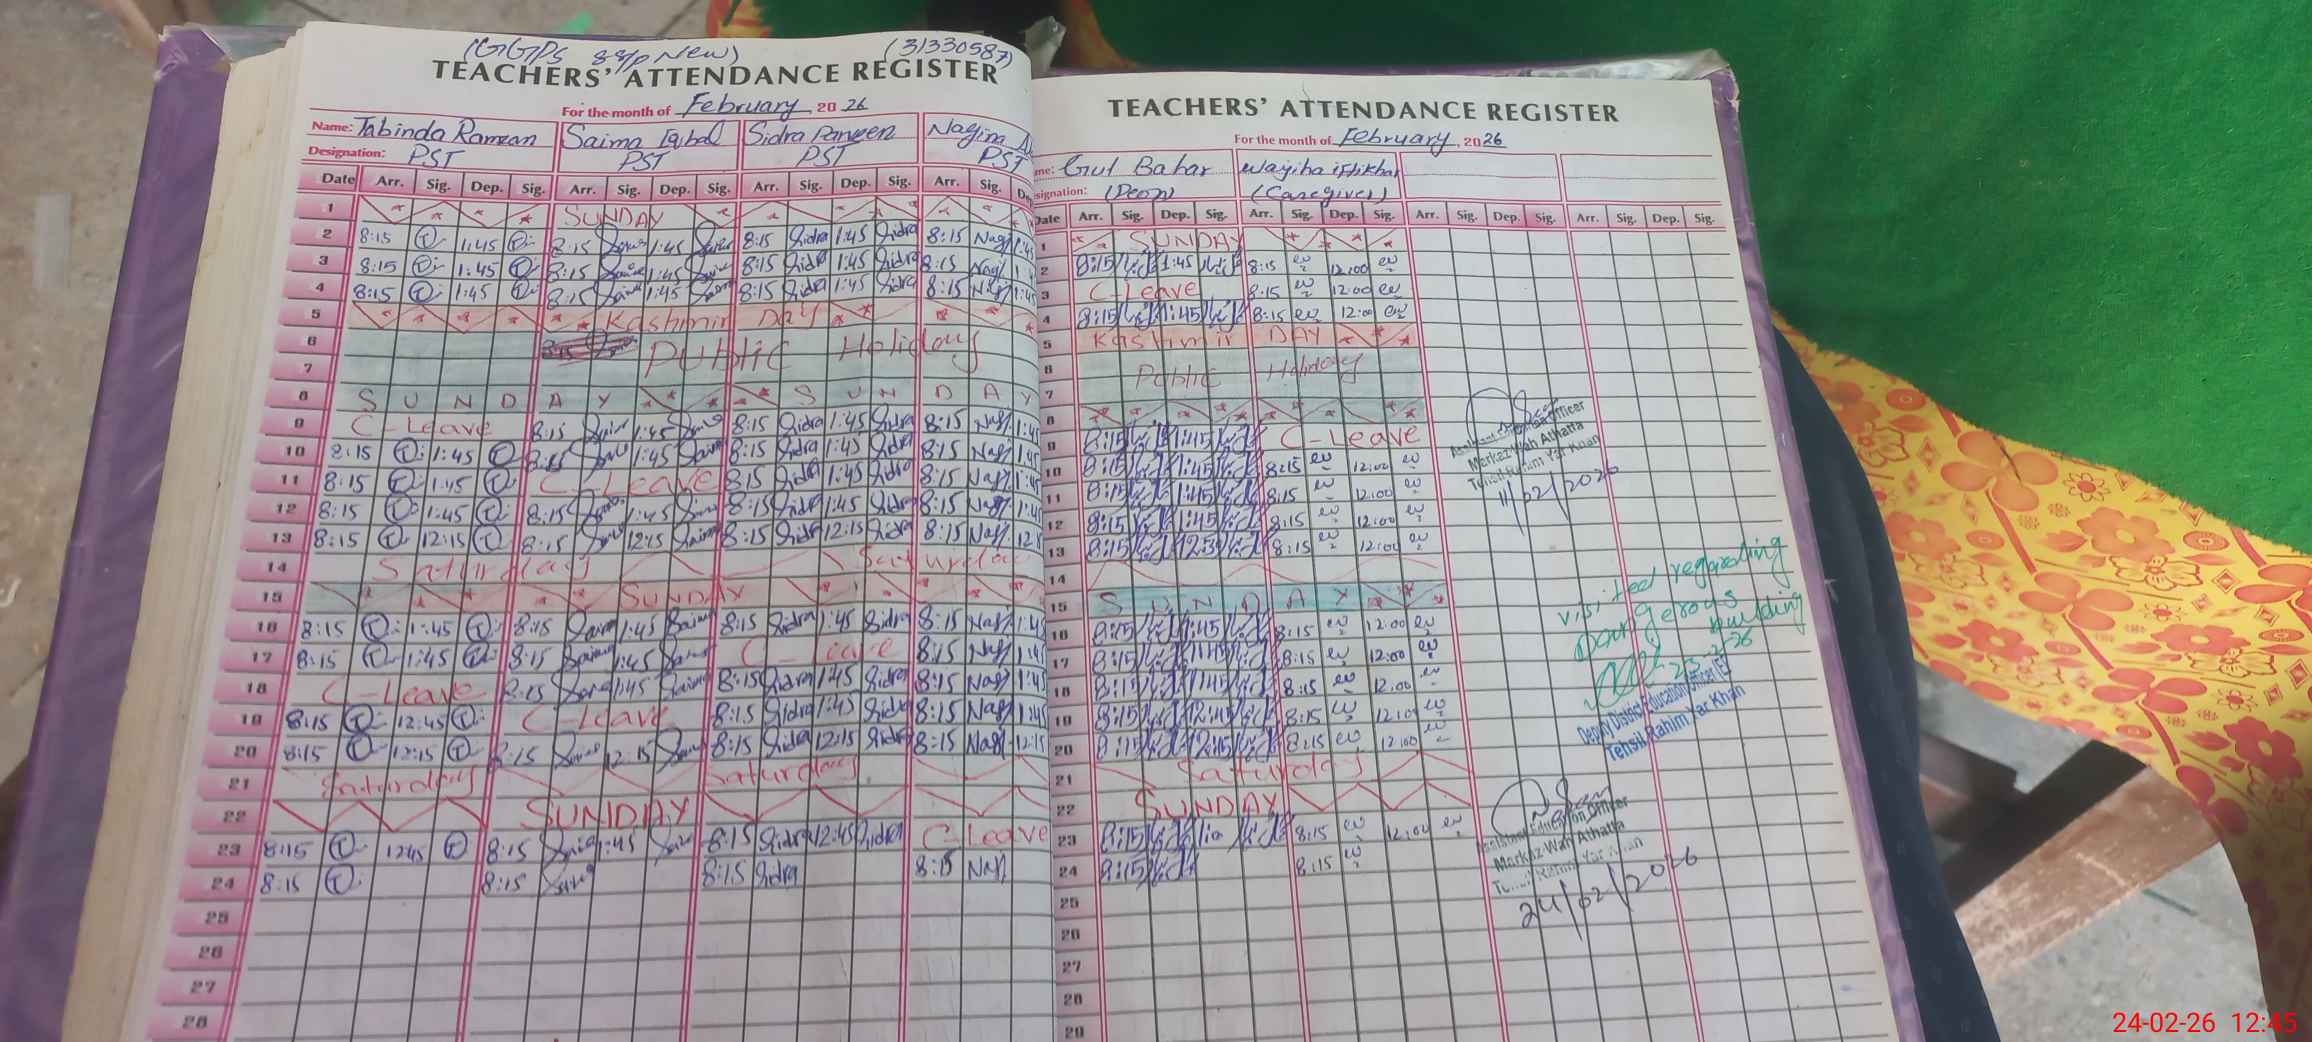 (GGPS 88/P New) (31330587)
TEACHERS' ATTENDANCE REGISTER
For the month of February 2026
Name: Tabinda Ramzan Saima Iqbal Sidra Parveen Nagina
Designation: PST PST PST PST
Date Arr. Sig. Dep. Sig. Arr. Sig. Dep. Sig. Arr. Sig. Dep. Sig. Arr. Sig.
1 SUNDAY
2 8:15 T 1:45 T 8:15 Saima 1:45 Saima 8:15 Sidra 1:45 Sidra 8:15 Nag 1:45
3 8:15 T 1:45 T 8:15 Saima 1:45 Saima 8:15 Sidra 1:45 Sidra 8:15 Nag
4 8:15 T 1:45 T 8:15 Saima 1:45 Saima 8:15 Sidra 1:45 Sidra 8:15 Nag 1:45
5 Kashmir Day
6 Public Holiday
7
8 SUNDAY SUNDAY
9 C-Leave 8:15 Saima 1:45 Saima 8:15 Sidra 1:45 Sidra 8:15 Nag 1:45
10 8:15 T 1:45 T 8:15 Saima 1:45 Saima 8:15 Sidra 1:45 Sidra 8:15 Nag 1:45
11 8:15 T 1:45 T C-Leave 8:15 Sidra 1:45 Sidra 8:15 Nag 1:45
12 8:15 T 1:45 T 8:15 Saima 1:45 Saima 8:15 Sidra 1:45 Sidra 8:15 Nag 1:45
13 8:15 T 12:15 T 8:15 Saima 12:15 Saima 8:15 Sidra 12:15 Sidra 8:15 Nag
14 Saturday Saturday
15 SUNDAY
16 8:15 T 1:45 T 8:15 Saima 1:45 Saima 8:15 Sidra 1:45 Sidra 8:15 Nag 1:45
17 8:15 T 1:45 T 8:15 Saima 1:45 Saima C-Leave 8:15 Nag 1:45
18 C-Leave 8:15 Saima 1:45 Saima 8:15 Sidra 1:45 Sidra 8:15 Nag 1:45
19 8:15 T 12:45 T C-Leave 8:15 Sidra 1:45 Sidra 8:15 Nag 1:45
20 8:15 T 12:15 T 8:15 Saima 12:15 Saima 8:15 Sidra 12:15 Sidra 8:15 Nag 12:15
21 Saturday Saturday
22 SUNDAY
23 8:15 T 1245 T 8:15 Saima 1:45 Saima 8:15 Sidra 12:45 Sidra C-Leave
24 8:15 T 8:15 Saima 8:15 Sidra 8:15 Nag
25
26
27
28
TEACHERS' ATTENDANCE REGISTER
For the month of February, 2026
Gul Bahar Wajiha iftikhar
(Peon) (Caregiver)
Date Arr. Sig. Dep. Sig. Arr. Sig. Dep. Sig. Arr. Sig. Dep. Sig. Arr. Sig. Dep. Sig.
1 SUNDAY
2 8:15 1:45 8:15 12:00
3 C-Leave 8:15 12:00
4 8:15 1:45 8:15 12:00
5 Kashmir DAY
6 Public Holiday
7
8
9 8:15 1:45 C-Leave
10 8:15 1:45 8:15 12:00
11 8:15 1:45 8:15 12:00
12 8:15 1:45 8:15 12:00
13 8:15 8:15 12:00
14
15 SUNDAY
16 8:15 1:45 8:15 12:00
17 8:15 1:45 8:15 12:00
18 8:15 1:45 8:15 12:00
19 8:15 12:45 8:15 12:00
20 8:15 12:15 8:15 12:00
21 Saturday
22 SUNDAY
23 8:15 8:15 12:00
24 8:15 8:15
25
26
27
28
29
Assistant Education Officer
Markaz Wah Athatta
Tehsil Rahim Yar Khan
11/02/2026
visited regarding
Dangerous
building
23-2-26
Deputy District Education Officer (E)
Tehsil Rahim Yar Khan
Assistant Education Officer
Markaz Wah Athatta
Tehsil Rahim Yar Khan
24/02/2026
24-02-26 12:45